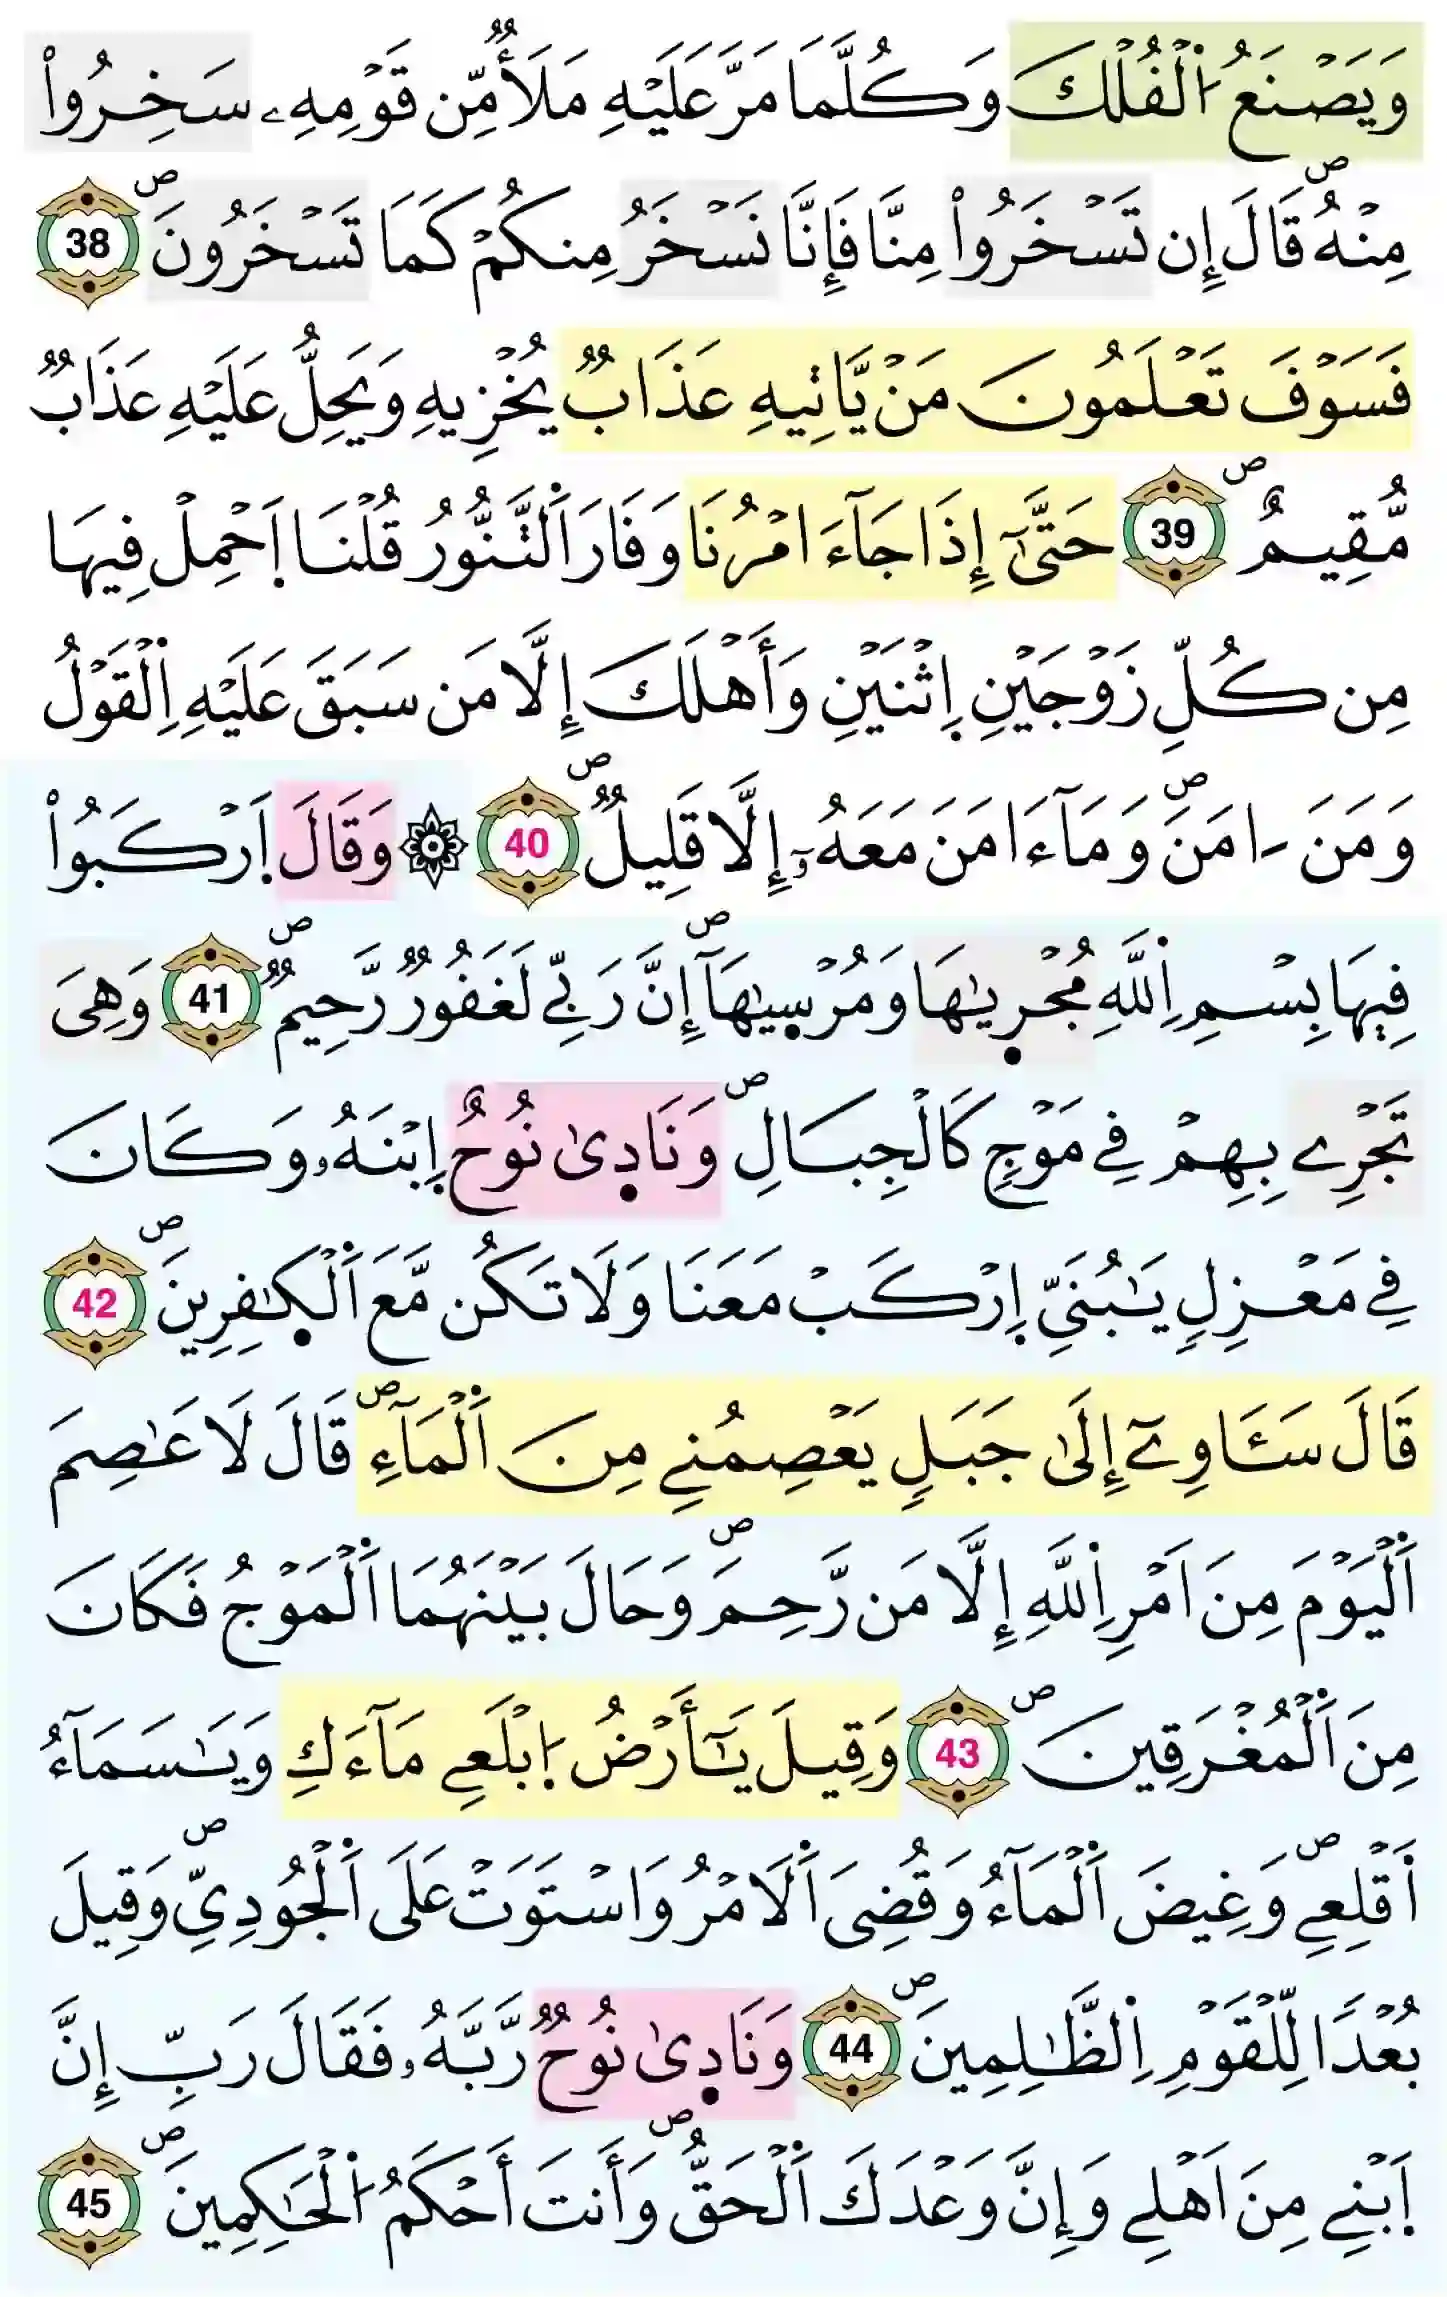 وَيَصْنَعُ اُ۬لْفُلْكَ وَكُلَّمَا مَرَّ عَلَيْهِ مَلَأٞ مِّن قَوْمِهِۦ سَخِرُواْ
مِنْهُۖ قَالَ إِن تَسْخَرُواْ مِنَّا فَإِنَّا نَسْخَرُ مِنكُمْ كَمَا تَسْخَرُونَۖ 38
فَسَوْفَ تَعْلَمُونَ مَنْ يَّاتِيهِ عَذَابٞ يُخْزِيهِ وَيَحِلُّ عَلَيْهِ عَذَابٞ
مُّقِيمٌۖ 39 حَتَّىٰٓ إِذَا جَآءَ امْرُنَا وَفَارَ اَ۬لتَّنُّورُ قُلْنَا اَ۪حْمِلْ فِيهَا
مِن كُلِّ زَوْجَيْنِ اِ۪ثْنَيْنِ وَأَهْلَكَ إِلَّا مَن سَبَقَ عَلَيْهِ اِ۬لْقَوْلُ
وَمَنَ اٰمَنَۖ وَمَآ ءَامَنَ مَعَهُۥٓ إِلَّا قَلِيلٞۖ 40 ۞ وَقَالَ اَ۪رْكَبُواْ
فِيهَا بِسْمِ اِ۬للَّهِ مُجْر۪يٰهَا وَمُرْس۪يٰهَآۖ إِنَّ رَبِّے لَغَفُورٞ رَّحِيمٞۖ 41 وَهِيَ
تَجْرِے بِهِمْ فِے مَوْجٖ كَالْجِبَالِۖ وَنَاد۪ىٰ نُوحٌ اِ۪بْنَهُۥ وَكَانَ
فِے مَعْزِلٖ يَٰبُنَيِّ اِ۪رْكَب مَعَنَا وَلَا تَكُن مَّعَ اَ۬لْكٰ۪فِرِينَۖ 42
قَالَ سَـَٔاوِےٓ إِلَىٰ جَبَلٖ يَعْصِمُنِے مِنَ اَ۬لْمَآءِۖ قَالَ لَا عَاصِمَ
اَ۬لْيَوْمَ مِنَ اَمْرِ اِ۬للَّهِ إِلَّا مَن رَّحِمَۖ وَحَالَ بَيْنَهُمَا اَ۬لْمَوْجُ فَكَانَ
مِنَ اَ۬لْمُغْرَقِينَۖ 43 وَقِيلَ يَٰٓأَرْضُ اُ۪بْلَعِے مَآءَكِ وَيَٰسَمَآءُ
اَ۬قْلِعِےۖ وَغِيضَ اَ۬لْمَآءُ وَقُضِيَ اَ۬لَامْرُ وَاسْتَوَتْ عَلَى اَ۬لْجُودِيِّۖ وَقِيلَ
بُعْدٗا لِّلْقَوْمِ اِ۬لظَّٰلِمِينَۖ 44 وَنَاد۪ىٰ نُوحٞ رَّبَّهُۥ فَقَالَ رَبِّ إِنَّ
اَ۪بْنِے مِنَ اَهْلِے وَإِنَّ وَعْدَكَ اَ۬لْحَقُّۖ وَأَنتَ أَحْكَمُ اُ۬لْحَٰكِمِينَۖ 45